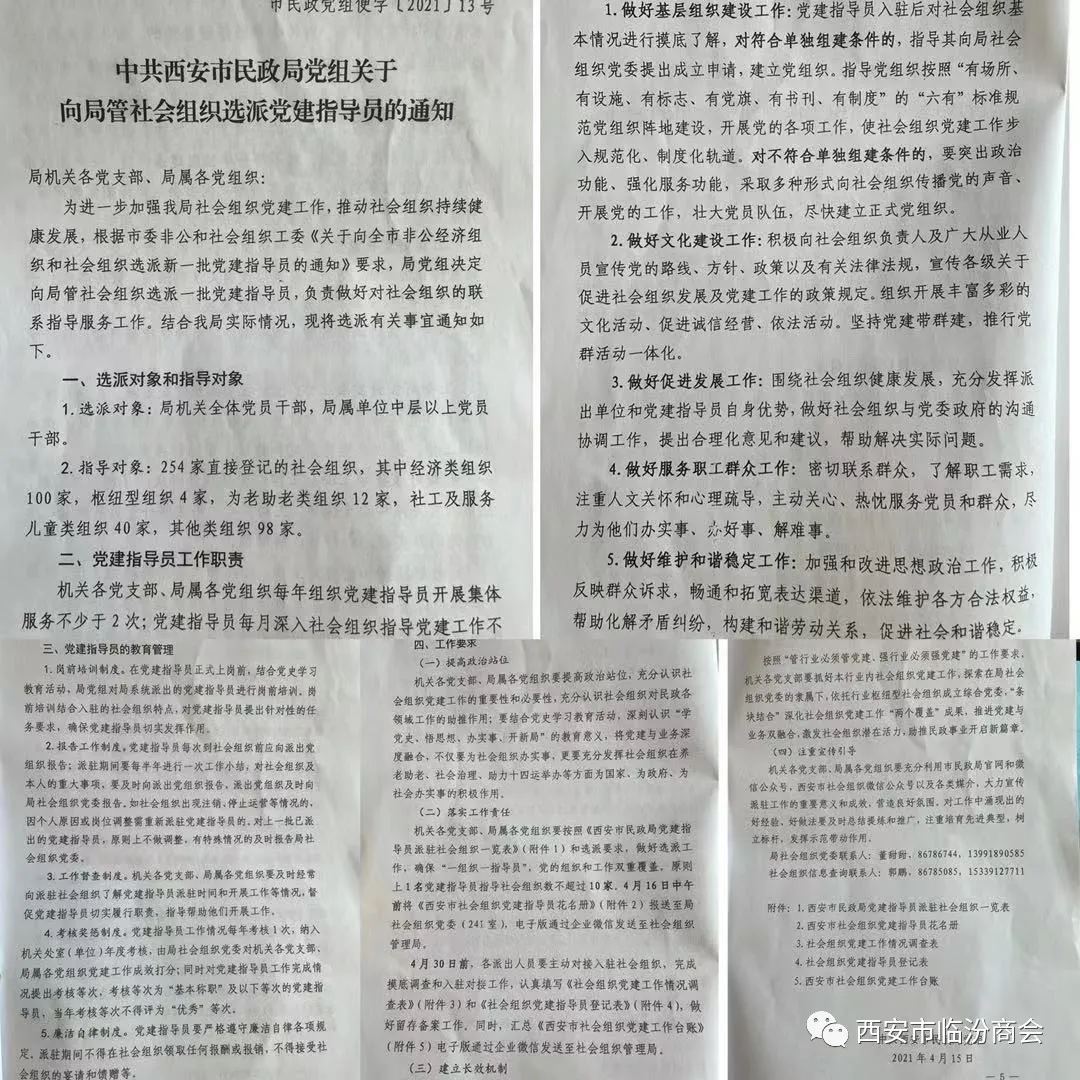 市民政党组便字〔2021〕13号
中共西安市民政局党组关于
向局管社会组织选派党建指导员的通知
局机关各党支部、局属各党组织：
为进一步加强我局社会组织党建工作，推动社会组织持续健
康发展，根据市委非公和社会组织工委《关于向全市非公经济组
织和社会组织选派新一批党建指导员的通知》要求，局党组决定
向局管社会组织选派一批党建指导员，负责做好对社会组织的联
系指导服务工作。结合我局实际情况，现将选派有关事宜通知如
下。
一、选派对象和指导对象
1.选派对象：局机关全体党员干部，局属单位中层以上党员
干部。
2.指导对象：254家直接登记的社会组织，其中经济类组织
100家，枢纽型组织4家，为老助老类组织12家，社工及服务
儿童类组织40家，其他类组织98家。
二、党建指导员工作职责
机关各党支部、局属各党组织每年组织党建指导员开展集体
服务不少于2次；党建指导员每月深入社会组织指导党建工作不
1.做好基层组织建设工作：党建指导员入驻后对社会组织基
本情况进行摸底了解，对符合单独组建条件的，指导其向局社会
组织党委提出成立申请，建立党组织。指导党组织按照“有场所、
有设施、有标志、有党旗、有书刊、有制度”的“六有”标准规
范党组织阵地建设，开展党的各项工作，使社会组织党建工作步
入规范化、制度化轨道。对不符合单独组建条件的，要突出政治
功能、强化服务功能，采取多种形式向社会组织传播党的声音、
开展党的工作，壮大党员队伍，尽快建立正式党组织。
2.做好文化建设工作：积极向社会组织负责人及广大从业人
员宣传党的路线、方针、政策以及有关法律法规，宣传各级关于
促进社会组织发展及党建工作的政策规定。组织开展丰富多彩的
文化活动、促进诚信经营、依法活动。坚持党建带群建，推行党
群活动一体化。
3.做好促进发展工作：围绕社会组织健康发展，充分发挥派
出单位和党建指导员自身优势，做好社会组织与党委政府的沟通
协调工作，提出合理化意见和建议，帮助解决实际问题。
4.做好服务职工群众工作：密切联系群众，了解职工需求，
注重人文关怀和心理疏导，主动关心、热忱服务党员和群众，尽
力为他们办实事、办好事、解难事。
5.做好维护和谐稳定工作：加强和改进思想政治工作，积极
反映群众诉求，畅通和拓宽表达渠道，依法维护各方合法权益，
帮助化解矛盾纠纷，构建和谐劳动关系，促进社会和谐稳定。
三、党建指导员的教育管理
1.岗前培训制度。在党建指导员正式上岗前，结合党史学习
教育活动，局党组对局系统派出的党建指导员进行岗前培训。岗
前培训结合入驻的社会组织特点，对党建指导员提出针对性的任
务要求，确保党建指导员切实发挥作用。
2.报告工作制度。党建指导员每次到社会组织前应向派出党
组织报告；派驻期间要每半年进行一次工作小结，对社会组织及
本人的重大事项，要及时向派出党组织报告，派出党组织及时向
局社会组织党委报告。如社会组织出现注销、停止运营等情况的，
因个人原因或岗位调整需重新派驻党建指导员的，对上一批已派
出的党建指导员，原则上不做调整，有特殊情况的及时报告局社
会组织党委。
3.工作督查制度。机关各党支部、局属各党组织要及时经常
向派驻社会组织了解党建指导员派驻时间和开展工作等情况，督
促党建指导员切实履行职责，指导帮助他们开展工作。
4.考核奖惩制度。党建指导员工作情况每年考核1次，纳入
机关处室（单位）年度考核，由局社会组织党委对机关各党支部、
局属各党组织党建工作成效打分；同时对党建指导员工作完成情
况提出考核等次，考核等次为“基本称职”及以下等次的党建指
导员，当年考核等次不得评为“优秀”等次。
5.廉洁自律制度。党建指导员要严格遵守廉洁自律各项规
定，派驻期间不得在社会组织领取任何报酬或报销，不得接受社
会组织的宴请和馈赠等。
四、工作要求
（一）提高政治站位
机关各党支部、局属各党组织要提高政治站位，充分认识社
会组织党建工作的重要性和必要性，充分认识社会组织对民政各
领域工作的助推作用；要结合党史学习教育活动，深刻认识“学
党史、悟思想、办实事、开新局”的教育意义，将党建与业务深
度融合，不仅要为社会组织办实事，更要充分发挥社会组织在养
老助老、社会治理、助力十四运举办等方面为国家、为政府、为
社会办实事的积极作用。
（二）落实工作责任
机关各党支部、局属各党组织要按照《西安市民政局党建指
导员派驻社会组织一览表》（附件1）和选派要求，做好选派工
作，确保“一组织一指导员”，党的组织和工作双重覆盖。原则
上1名党建指导员指导社会组织数不超过10家。4月16日中午
前将《西安市社会组织党建指导员花名册》（附件2）报送至局
社会组织党委（241室），电子版通过企业微信发送至社会组织
管理局。
4月30日前，各派出人员要主动对接入驻社会组织，完成
摸底调查和入驻对接工作，认真填写《社会组织党建工作情况调
查表》（附件3）和《社会组织党建指导员登记表》（附件4），做
好留存备案工作。同时，汇总《西安市社会组织党建工作台账》
（附件5）电子版通过企业微信发送至社会组织管理局。
（三）建立长效机制
按照“管行业必须管党建、强行业必须强党建”的工作要求，
机关各党支部要抓好本行业内社会组织党建工作，探索在局社会
组织党委的隶属下，依托行业枢纽型社会组织成立综合党委，“条
块结合”深化社会组织党建工作“两个覆盖”成果，推进党建与
业务双融合，激发社会组织潜在活力，助推民政事业开启新篇章。
（四）注重宣传引导
机关各党支部、局属各党组织要充分利用市民政局官网和微
信公众号，西安市社会组织微信公众号以及各类媒介，大力宣传
派驻工作的重要意义和成效，营造良好氛围。对工作中涌现出的
好经验、好做法要及时总结提炼和推广，注重培育先进典型，树
立标杆，发挥示范带动作用。
局社会组织党委联系人：董甜甜，86786744，13991890585
社会组织信息查询联系人：郭鹏，86785085，15339127711
附件：1.西安市民政局党建指导员派驻社会组织一览表
2.西安市社会组织党建指导员花名册
3.社会组织党建工作情况调查表
4.社会组织党建指导员登记表
5.西安市社会组织党建工作台账
西安市临汾商会
2021年4月15日
— 5 —